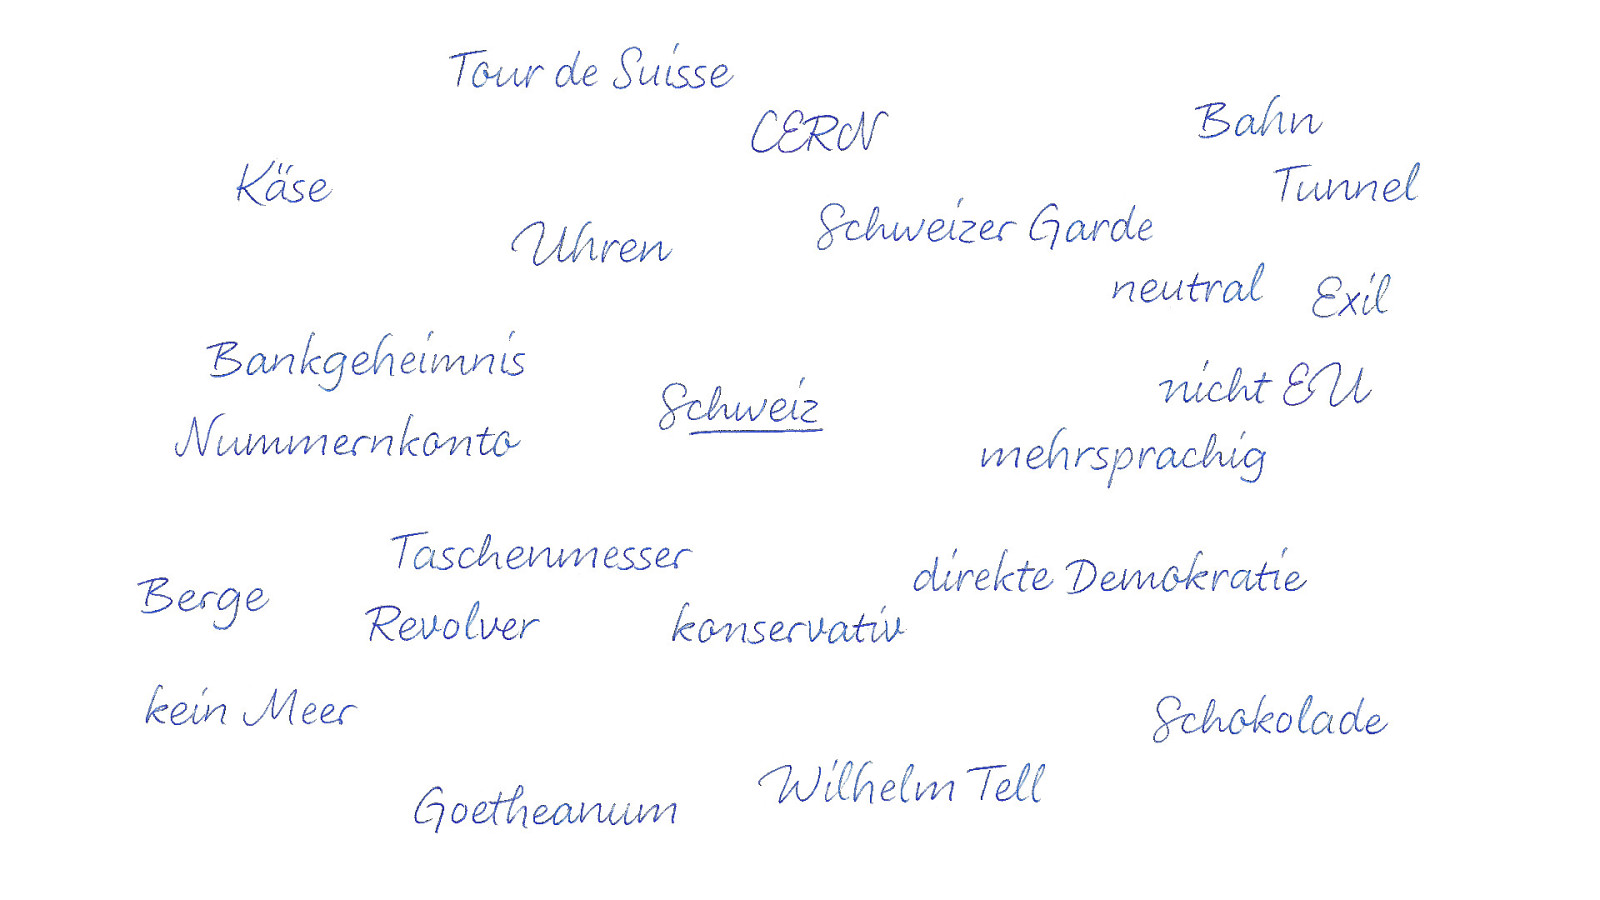 Tour de Suisse
CERN
Bahn
Käse
Tunnel
Uhren
Schweizer Garde
neutral
Exil
Bankgeheimnis
Schweiz
nicht EU
Nummernkonto
mehrsprachig
Taschenmesser
direkte Demokratie
Berge
Revolver
konservativ
kein Meer
Schokolade
Wilhelm Tell
Goetheanum